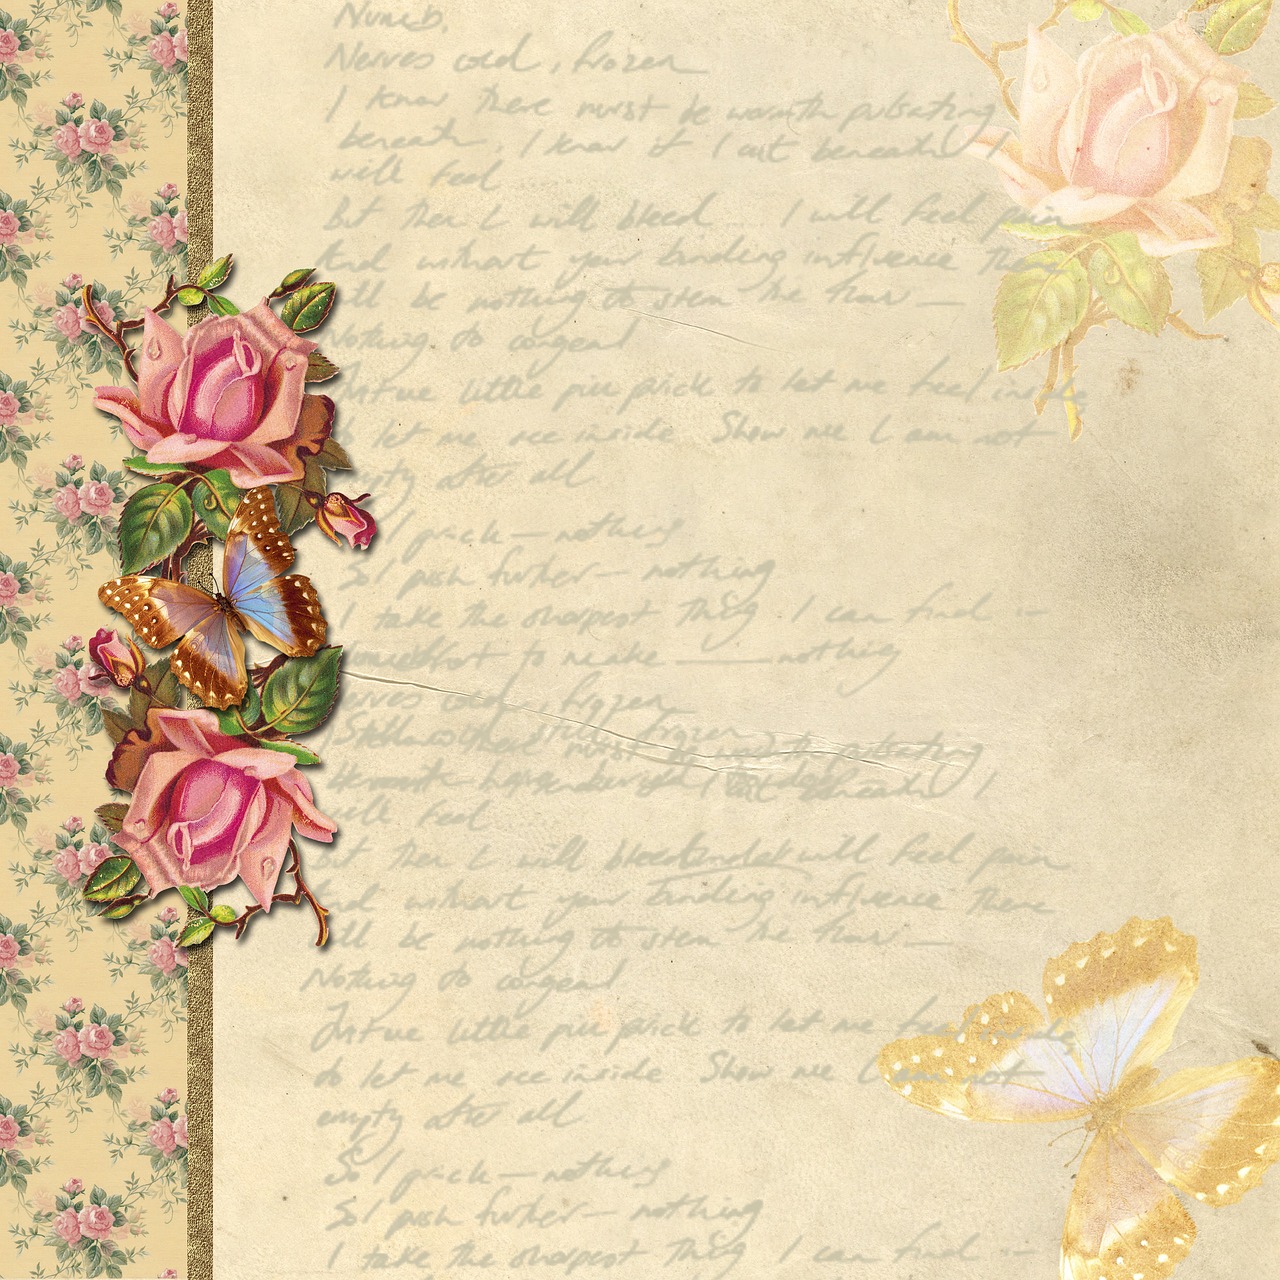 Numb.
Nerves cold, frozen
I know there must be warmth pulsating
beneath, I know if I cut beneath I
will feel
But then I will bleed I will feel pain
And without your binding influence there
will be nothing to stem the flow —
Nothing to congeal
little pin prick to let me feel inside
to let me see inside Show me I am not
empty after all
So I prick — nothing
So I push further — nothing
I take the sharpest thing I can find —
to make — nothing
Nerves cold, frozen
there must
beneath I
will feel
But then I will will feel pain
And without your binding influence there
will be nothing to stem the flow —
Nothing to congeal
little pin prick to let me feel inside
to let me see inside Show me I am not
empty after all
So I prick — nothing
So I push further — nothing
I take the sharpest thing I can find —